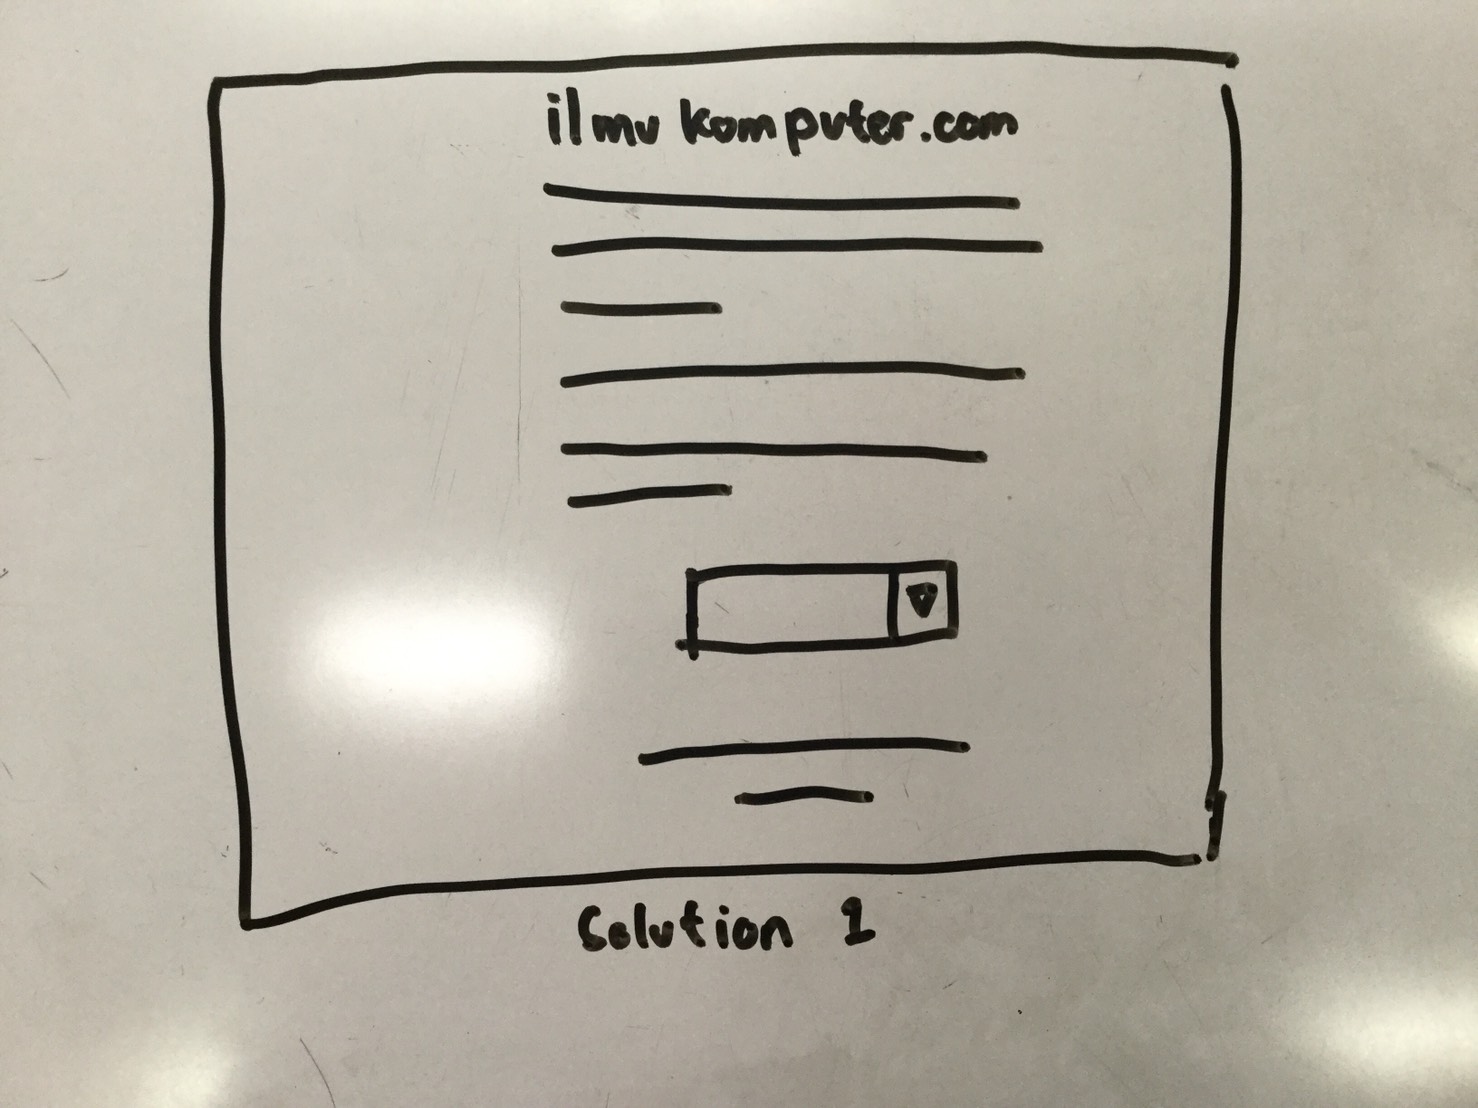 ilmu komputer.com
Solution 1